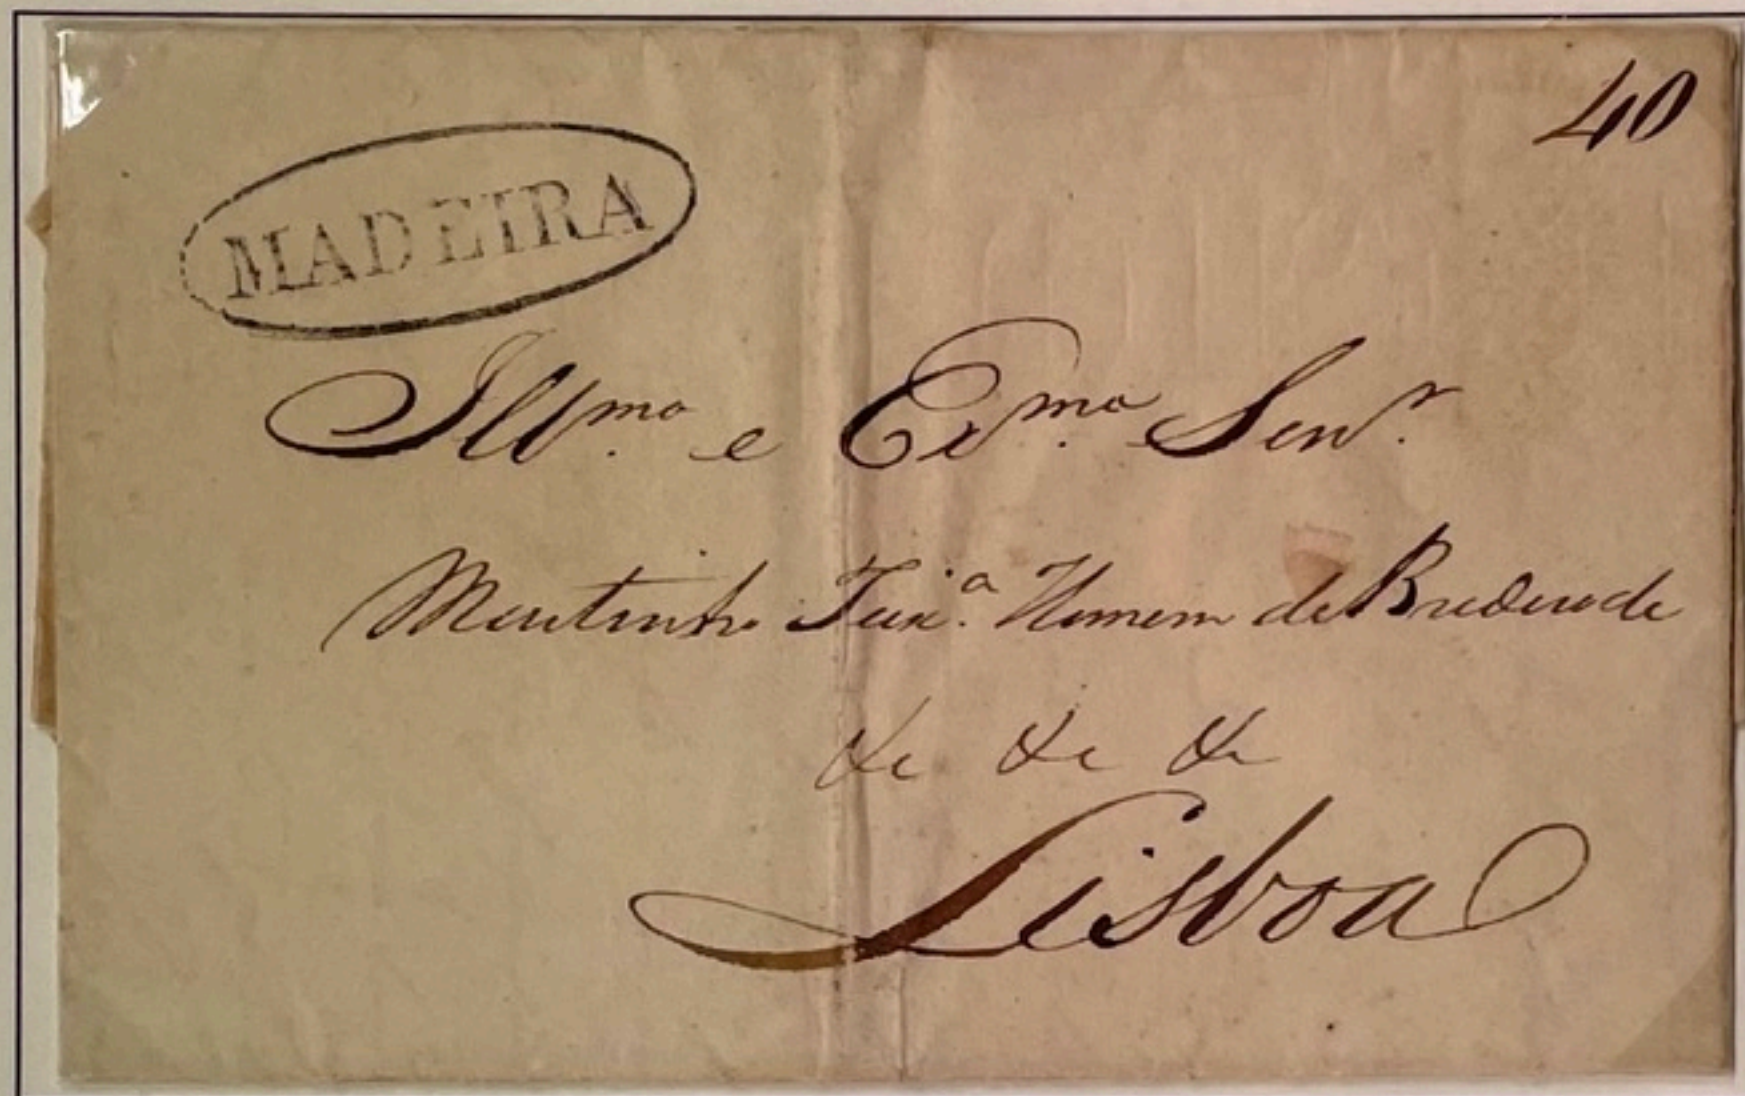 40
MADEIRA
Ill.mo e Ex.mo Sen.r
Martinho Teix.a Homem de Brederode
&c &c &c
Lisboa